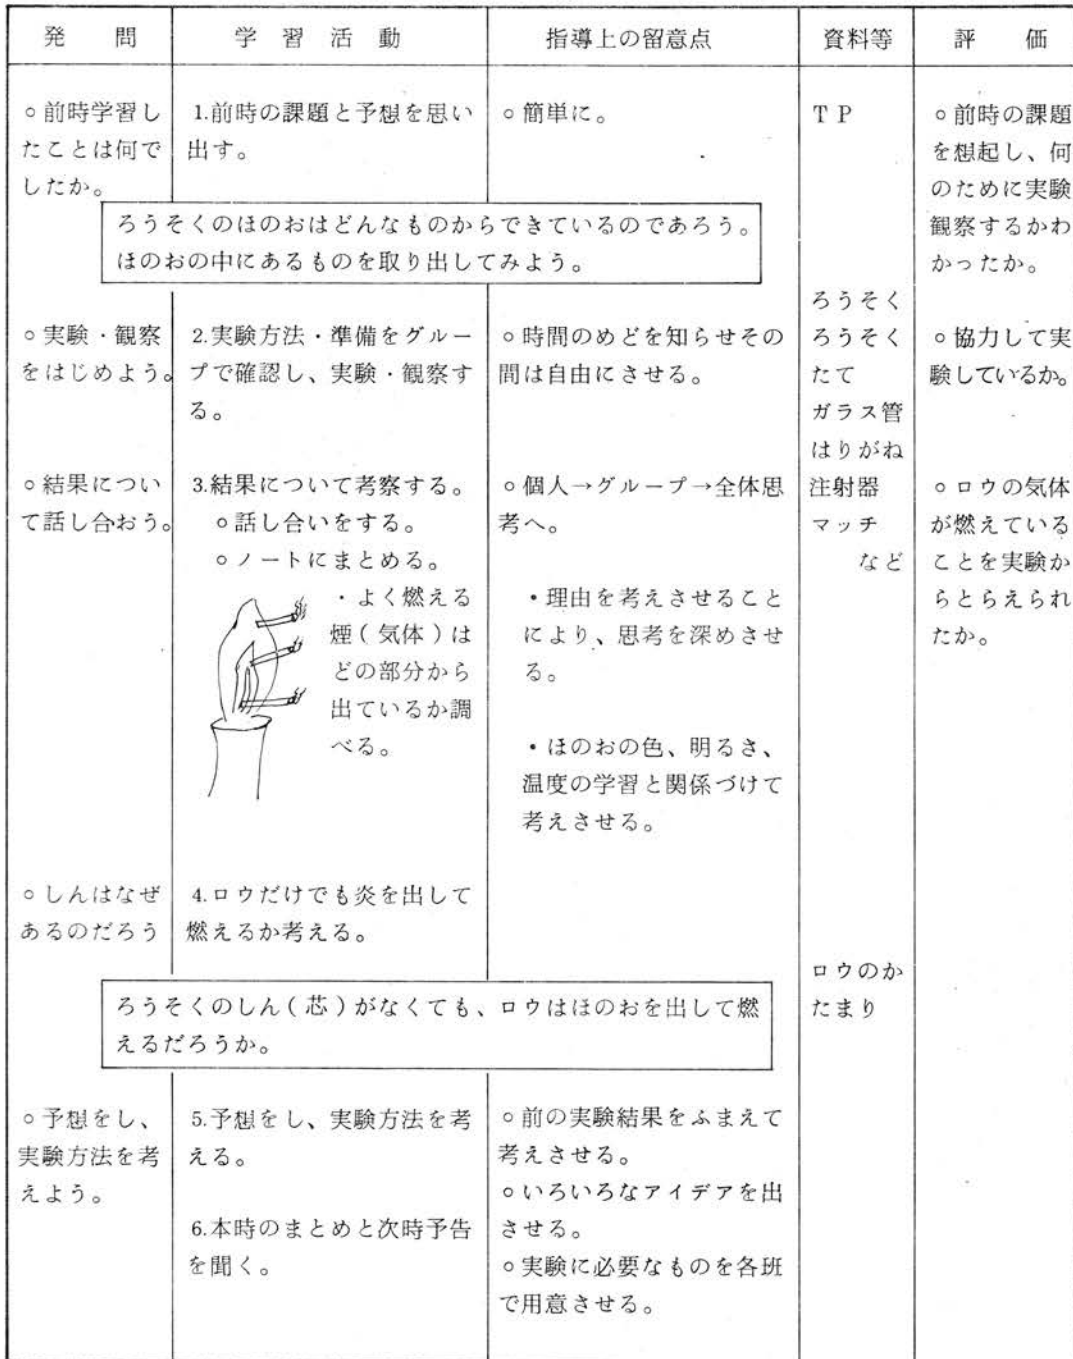 発問 学習活動 指導上の留意点 資料等 評価
○前時学習し
たことは何で
したか。
1.前時の課題と予想を思い
出す。
○簡単に。
TP
○前時の課題
を想起し、何
のために実験
観察するかわ
かったか。
ろうそくのほのおはどんなものからできているのであろう。
ほのおの中にあるものを取り出してみよう。
○実験・観察
をはじめよう。
2.実験方法・準備をグルー
プで確認し、実験・観察す
る。
○時間のめどを知らせその
間は自由にさせる。
ろうそく
ろうそく
たて
ガラス管
はりがね
注射器
マッチ
など
○協力して実
験しているか。
○結果につい
て話し合おう。
3.結果について考察する。
○話し合いをする。
○ノートにまとめる。
・よく燃える
煙(気体)は
どの部分から
出ているか調
べる。
○個人→グループ→全体思
考へ。
・理由を考えさせること
により、思考を深めさせ
る。
・ほのおの色、明るさ、
温度の学習と関係づけて
考えさせる。
○ロウの気体
が燃えている
ことを実験か
らとらえられ
たか。
○しんはなぜ
あるのだろう
4.ロウだけでも炎を出して
燃えるか考える。
ロウのか
たまり
ろうそくのしん(芯)がなくても、ロウはほのおを出して燃
えるだろうか。
○予想をし、
実験方法を考
えよう。
5.予想をし、実験方法を考
える。
6.本時のまとめと次時予告
を聞く。
○前の実験結果をふまえて
考えさせる。
○いろいろなアイデアを出
させる。
○実験に必要なものを各班
で用意させる。